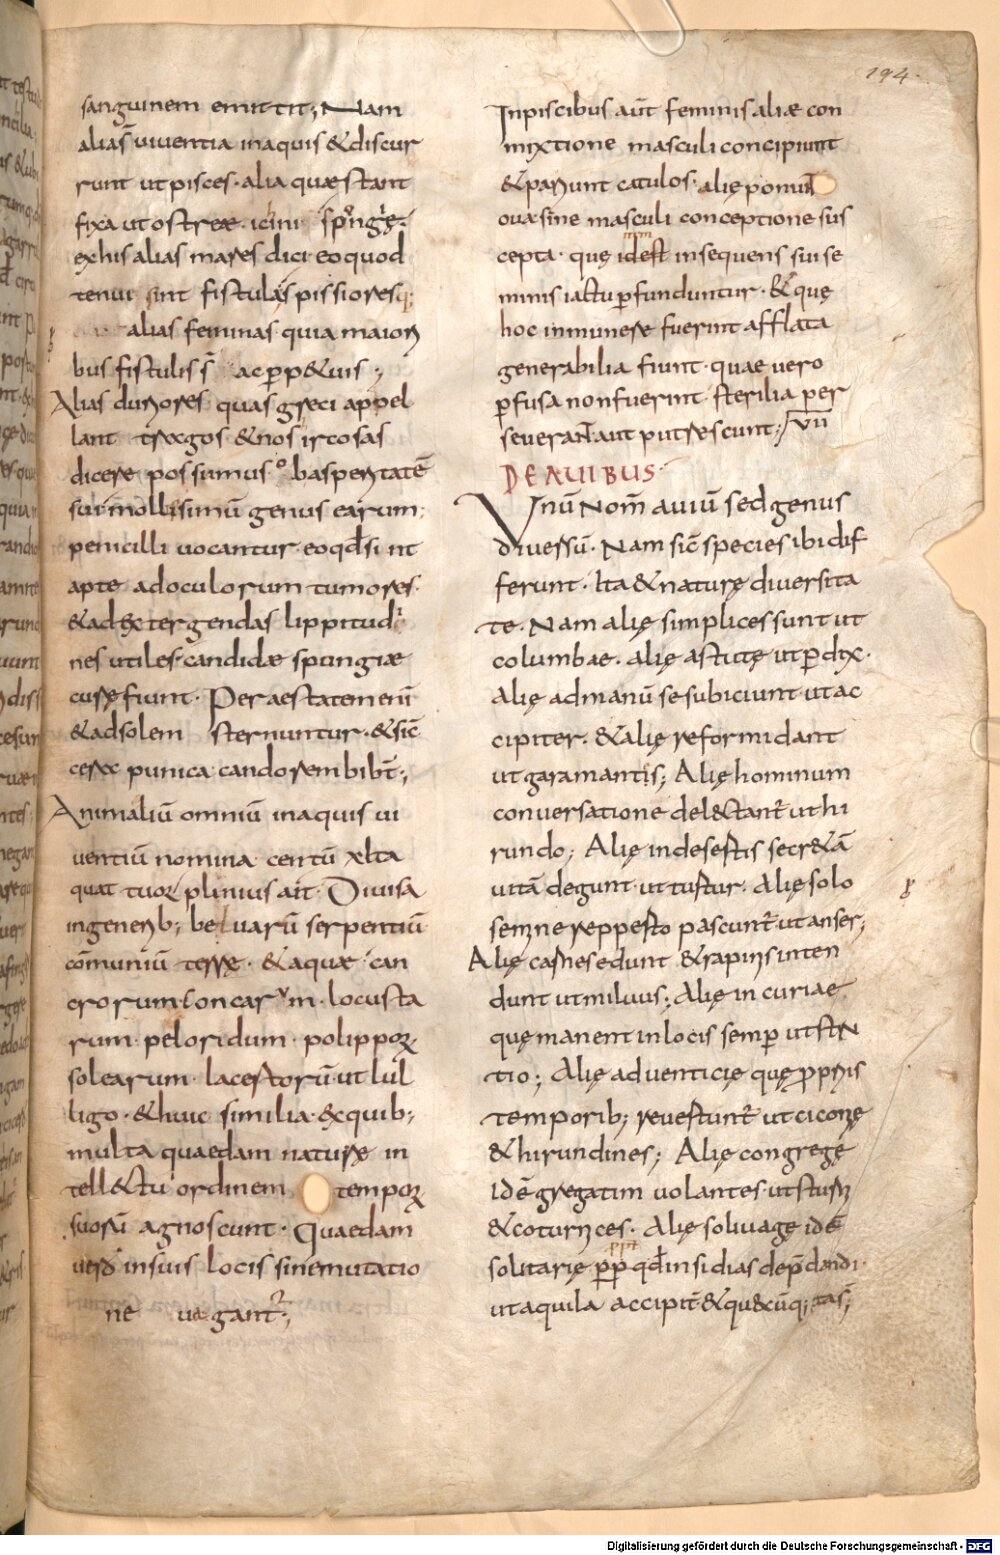 194.
sanguinem emittit; Nam
alias viventia inaquis &discur
runt utpisces. alia quæ stant
fixa ut ostreæ. icini spongię.
exhis alias mares dici eoquod
tenui sint fistula spissiores q;
alias feminas quia maiori
bus fistulis s̄ ac ꝑp&uis;
Alias duriores quas greci appel
lant tragos &nos ircosas
dicere possumus basperitatē
sui mollissimū genus earum;
penicilli vocantur eoqđ si nt
apte adoculorum tumores.
&ad extergendas lippitudi
nes utiles. candidæ spungiæ
curę fiunt. Per aestatem enī
&adsolem sternuntur. &sic̄
ceræ punica candorem bibt̄;
Animaliū omniū inaquis vi
ventiū nomina centū xlta
quat tuoꝝ plinius ait. Divisa
ingenerib; beluarū serpentiū
com̄uniū terrę. &aquæ can
crorum. concarum. locusta
rum. peloridum. polippoꝝ.
solearum. lacertorū. ut lul
ligo. &huic similia. &quib;
multa quaedam naturæ in
tell&tu ordinem tempoꝝ
suorū agnoscunt. Quaedam
vero insuis locis sinemutatio
ne vagant̄;
Inpiscibus aūt feminis aliæ con
mixtione masculi concipiunt
&pariunt catulos. alię ponunt
ova sine masculi conceptione sus
cepta. quę idest insequens sui se
minis iactu ꝑfunduntur. & quę
hoc inmunere fuerint afflata
generabilia fiunt. quae vero
ꝑfusa nonfuerint sterilia per
severant aut putrescunt; VII
DE AVIBUS.
Vnū Nom̄ aviū sed genus
diversū. Nam sic̄ species ibi dif
ferunt. Ita &naturę diversita
te. Nam alię simplices sunt ut
columbae. alię astutę ut ꝑdix.
Alię admanū se subiciunt ut ac
cipiter. &alię reformidant
ut garamantis; Alię hominum
conversatione del&tant̄ ut hi
rundo; Alię indesertis secr&ā
vitā degunt ut turtur. Alię solo
semine repperto pascunt̄ ut anser;
Alię carnes edunt &rapinis inten
dunt ut milvus; Alię in curiae
quę manent in locis semꝑ ut stru
tio; Alię adventicię quę ꝓpriis
temporib; revertunt̄ ut ciconę
&hirundines; Alię congregę
Idē gregatim volantes ut sturni
&coturnices. Alię solivagę idē
solitarię ꝑp̄ qđ insidias dep̄dandi.
ut aquila accipit̄ &quęcūq; tas;
Digitalisierung gefördert durch die Deutsche Forschungsgemeinschaft - DFG